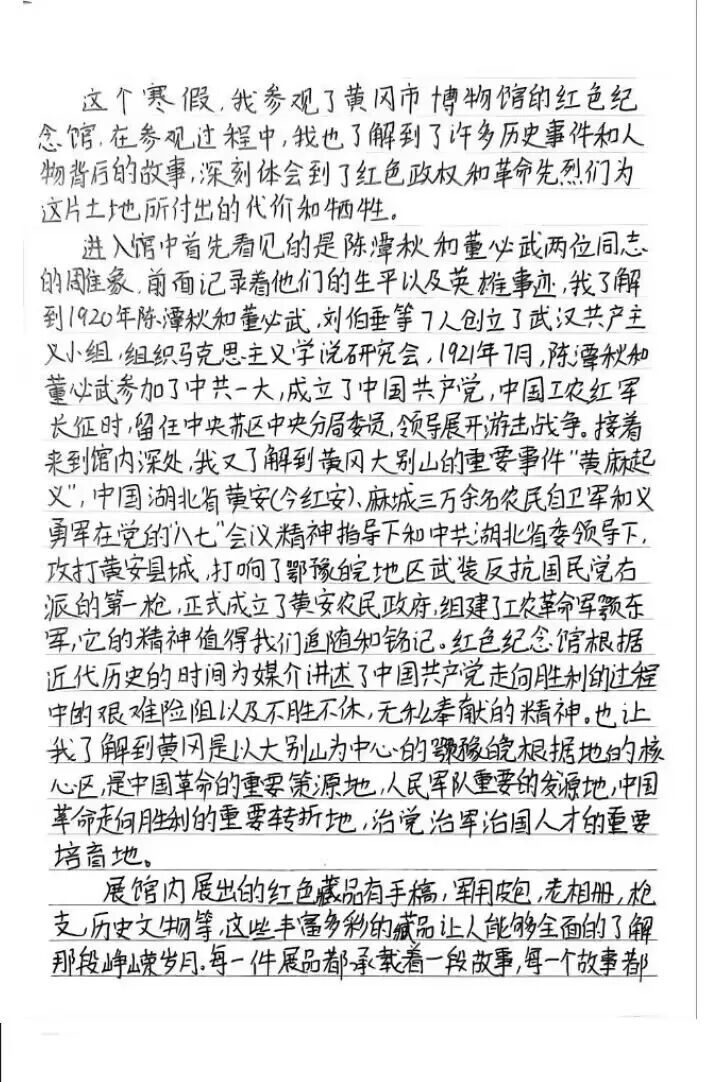 这个寒假,我参观了黄冈市博物馆的红色纪
念馆,在参观过程中,我也了解到了许多历史事件和人
物背后的故事,深刻体会到了红色政权和革命先烈们为
这片土地所付出的代价和牺牲。
进入馆中首先看见的是陈潭秋和董必武两位同志
的雕象,前面记录着他们的生平以及英雄事迹,我了解
到1920年陈潭秋和董必武,刘伯垂等7人创立了武汉共产主
义小组,组织马克思主义学说研究会,1921年7月,陈潭秋和
董必武参加了中共一大,成立了中国共产党,中国工农红军
长征时,留任中央苏区中央分局委员,领导展开游击战争。接着
来到馆内深处,我又了解到黄冈大别山的重要事件“黄麻起
义”,中国湖北省黄安(今红安)、麻城三万余名农民自卫军和义
勇军在党的“八七”会议精神指导下和中共湖北省委领导下,
攻打黄安县城,打响了鄂豫皖地区武装反抗国民党右
派的第一枪,正式成立了黄安农民政府,组建了工农革命军鄂东
军,它的精神值得我们追随和铭记。红色纪念馆根据
近代历史的时间为媒介讲述了中国共产党走向胜利的过程
中的艰难险阻以及不胜不休,无私奉献的精神。也让
我了解到黄冈是以大别山为中心的鄂豫皖根据地的核
心区,是中国革命的重要策源地,人民军队重要的发源地,中国
革命走向胜利的重要转折地,治党治军治国人才的重要
培育地。
展馆内展出的红色藏品有手稿,军用皮包,老相册,枪
支,历史文物等,这些丰富多彩的藏品让人能够全面的了解
那段峥嵘岁月。每一件展品都承载着一段故事,每一个故事都